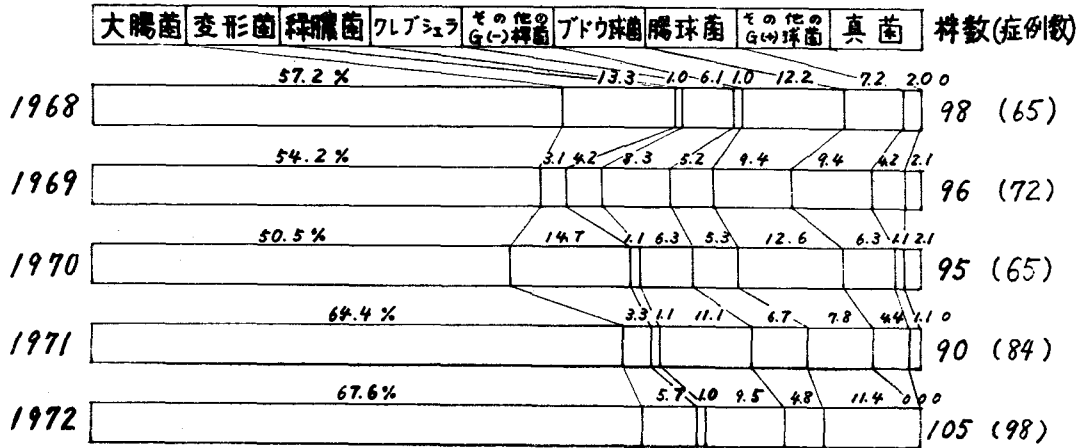 大腸菌 変形菌 緑膿菌 クレブシェラ その他のG(-)桿菌 ブドウ球菌 腸球菌 その他のG(+)球菌 真菌 株数(症例数)
57.2% 13.3 1.0 6.1 1.0 12.2 7.2 2.0 0
1968 98 (65)
54.2% 3.1 4.2 8.3 5.2 9.4 9.4 4.2 2.1
1969 96 (72)
50.5% 14.7 1.1 6.3 5.3 12.6 6.3 1.1 2.1
1970 95 (65)
64.4% 3.3 1.1 11.1 6.7 7.8 4.4 1.1 0
1971 90 (84)
67.6% 5.7 1.0 9.5 4.8 11.4 0 0 0
1972 105 (98)